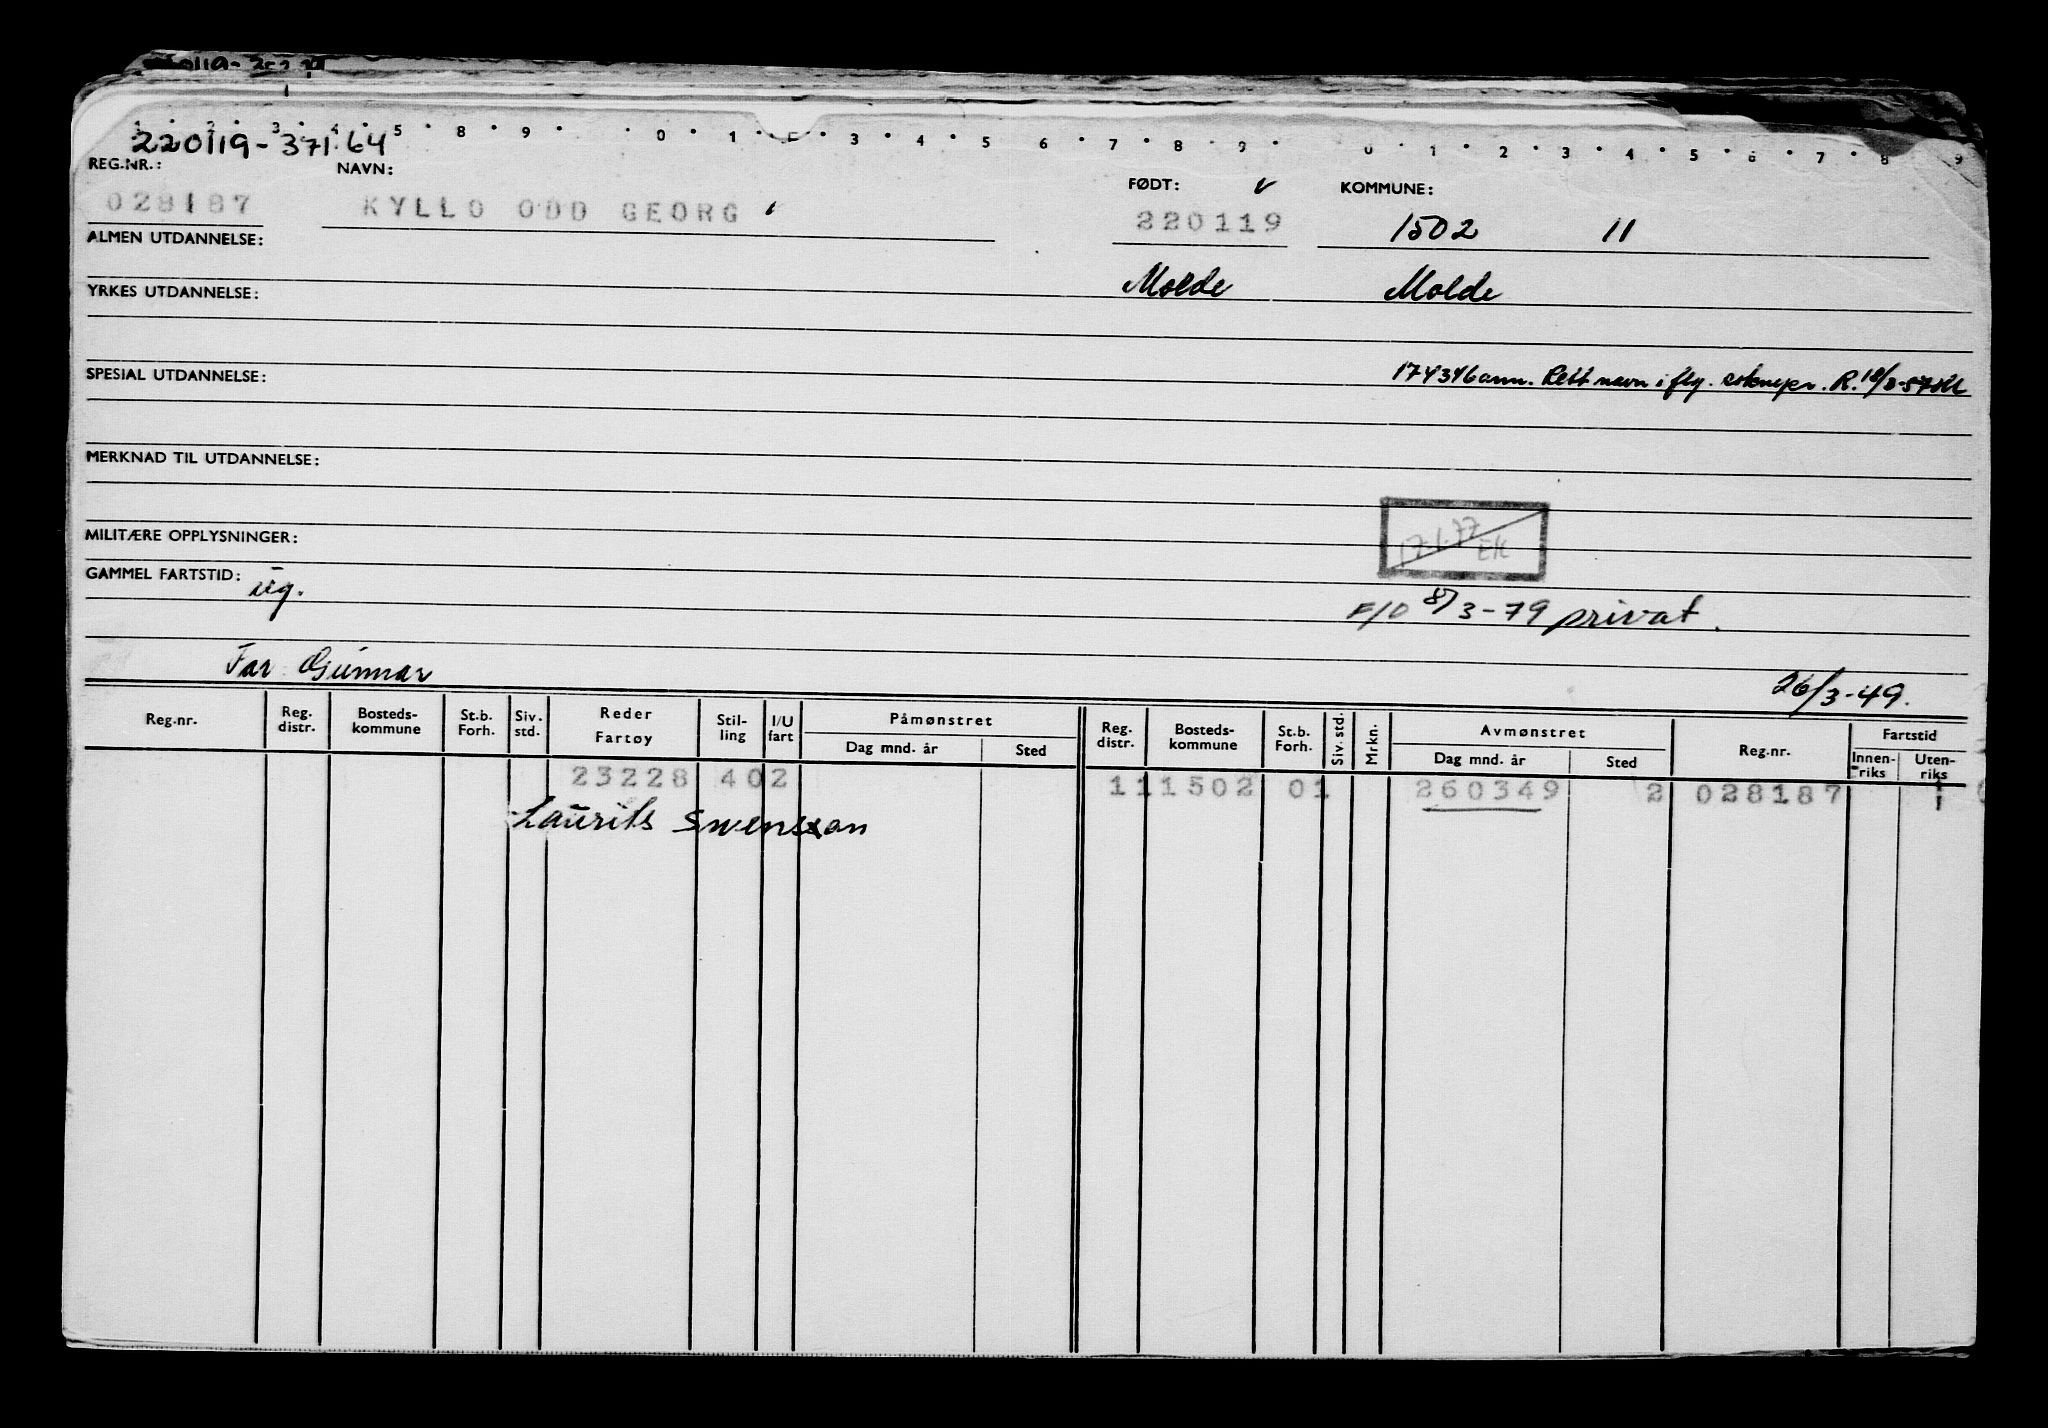 220119-371.64
REG.NR.: NAVN: FØDT: KOMMUNE:
028187 KYLLO ODD GEORG 220119 1502 11
ALMEN UTDANNELSE:
Molde Molde
YRKES UTDANNELSE:
SPESIAL UTDANNELSE: 174346 ann. Rett navn i flg.
MERKNAD TIL UTDANNELSE:
17.1.77 EK
MILITÆRE OPPLYSNINGER:
GAMMEL FARTSTID: ug.
F/O 8/3-79 privat.
Far Gunnar 26/3-49.
Reg.nr. Reg. distr. Bosteds-kommune St.b. Forh. Siv. std. Reder Fartøy Stil-ling I/U fart Påmønstret Dag mnd. år Sted Reg. distr. Bosteds-kommune St.b. Forh. Siv. std. Mrkn. Avmønstret Dag mnd. år Sted Reg.nr. Fartstid Innen-riks Uten-riks
23228 402 11 1502 01 260349 2 028187
Laurits Swensson